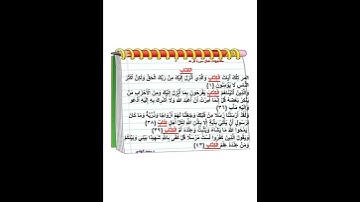 الكتاب
المر تلك آيات الكتاب والذي أنزل إليك من ربك الحق ولكن أكثر
الناس لا يؤمنون (١)
والذين آتيناهم الكتاب يفرحون بما أنزل إليك ومن الأحزاب من
ينكر بعضه قل إنما أمرت أن أعبد الله ولا أشرك به إليه أدعو
وإليه مآب (٣٦)
ولقد أرسلنا رسلا من قبلك وجعلنا لهم أزواجا وذرية وما كان
لرسول أن يأتي بآية إلا بإذن الله لكل أجل كتاب (٣٨)
يمحوا الله ما يشاء ويثبت وعنده أم الكتاب (٣٩)
ويقول الذين كفروا لست مرسلا قل كفى بالله شهيدا بيني وبينكم
ومن عنده علم الكتاب (٤٣)